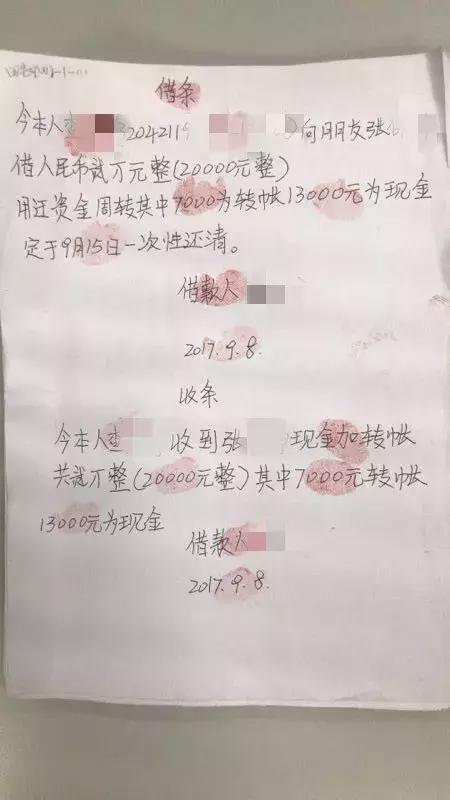 借条
今本人查 2042119 向朋友张
借人民币贰万元整(20000元整)
用于资金周转其中7000为转帐13000元为现金
定于9月15日一次性还清。
借款人
2017.9.8.
收条
今本人查 收到张 现金加转帐
共贰万整(20000元整)其中7000元转帐
13000元为现金
借款人
2017.9.8.